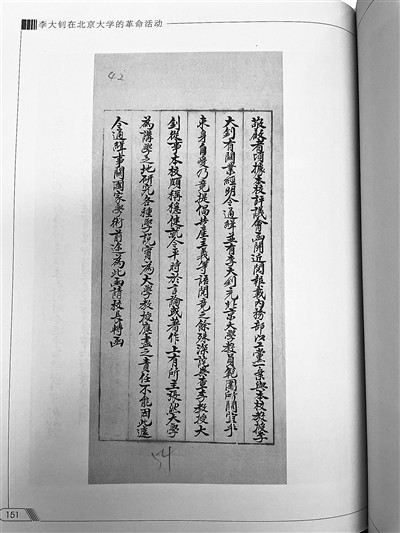 李大钊在北京大学的革命活动
42
敬啟者頃據本校評議會函開近閱報載內務部以工黨一案與本校教授李
大釗有關業經明令通緝並有李大釗充北京大學教員範圍所關宜乎
束身自愛乃竟提倡共產主義等語閱悉之餘殊深詫異查李教授大
釗從事本校頗稱穩健就令平時於言論或著作上有所主張然大學
為講學之地研究各種學說實為大學教授應盡之責任不能因此遽
令通緝事關國家學術前途為此函請校長轉函
54
151